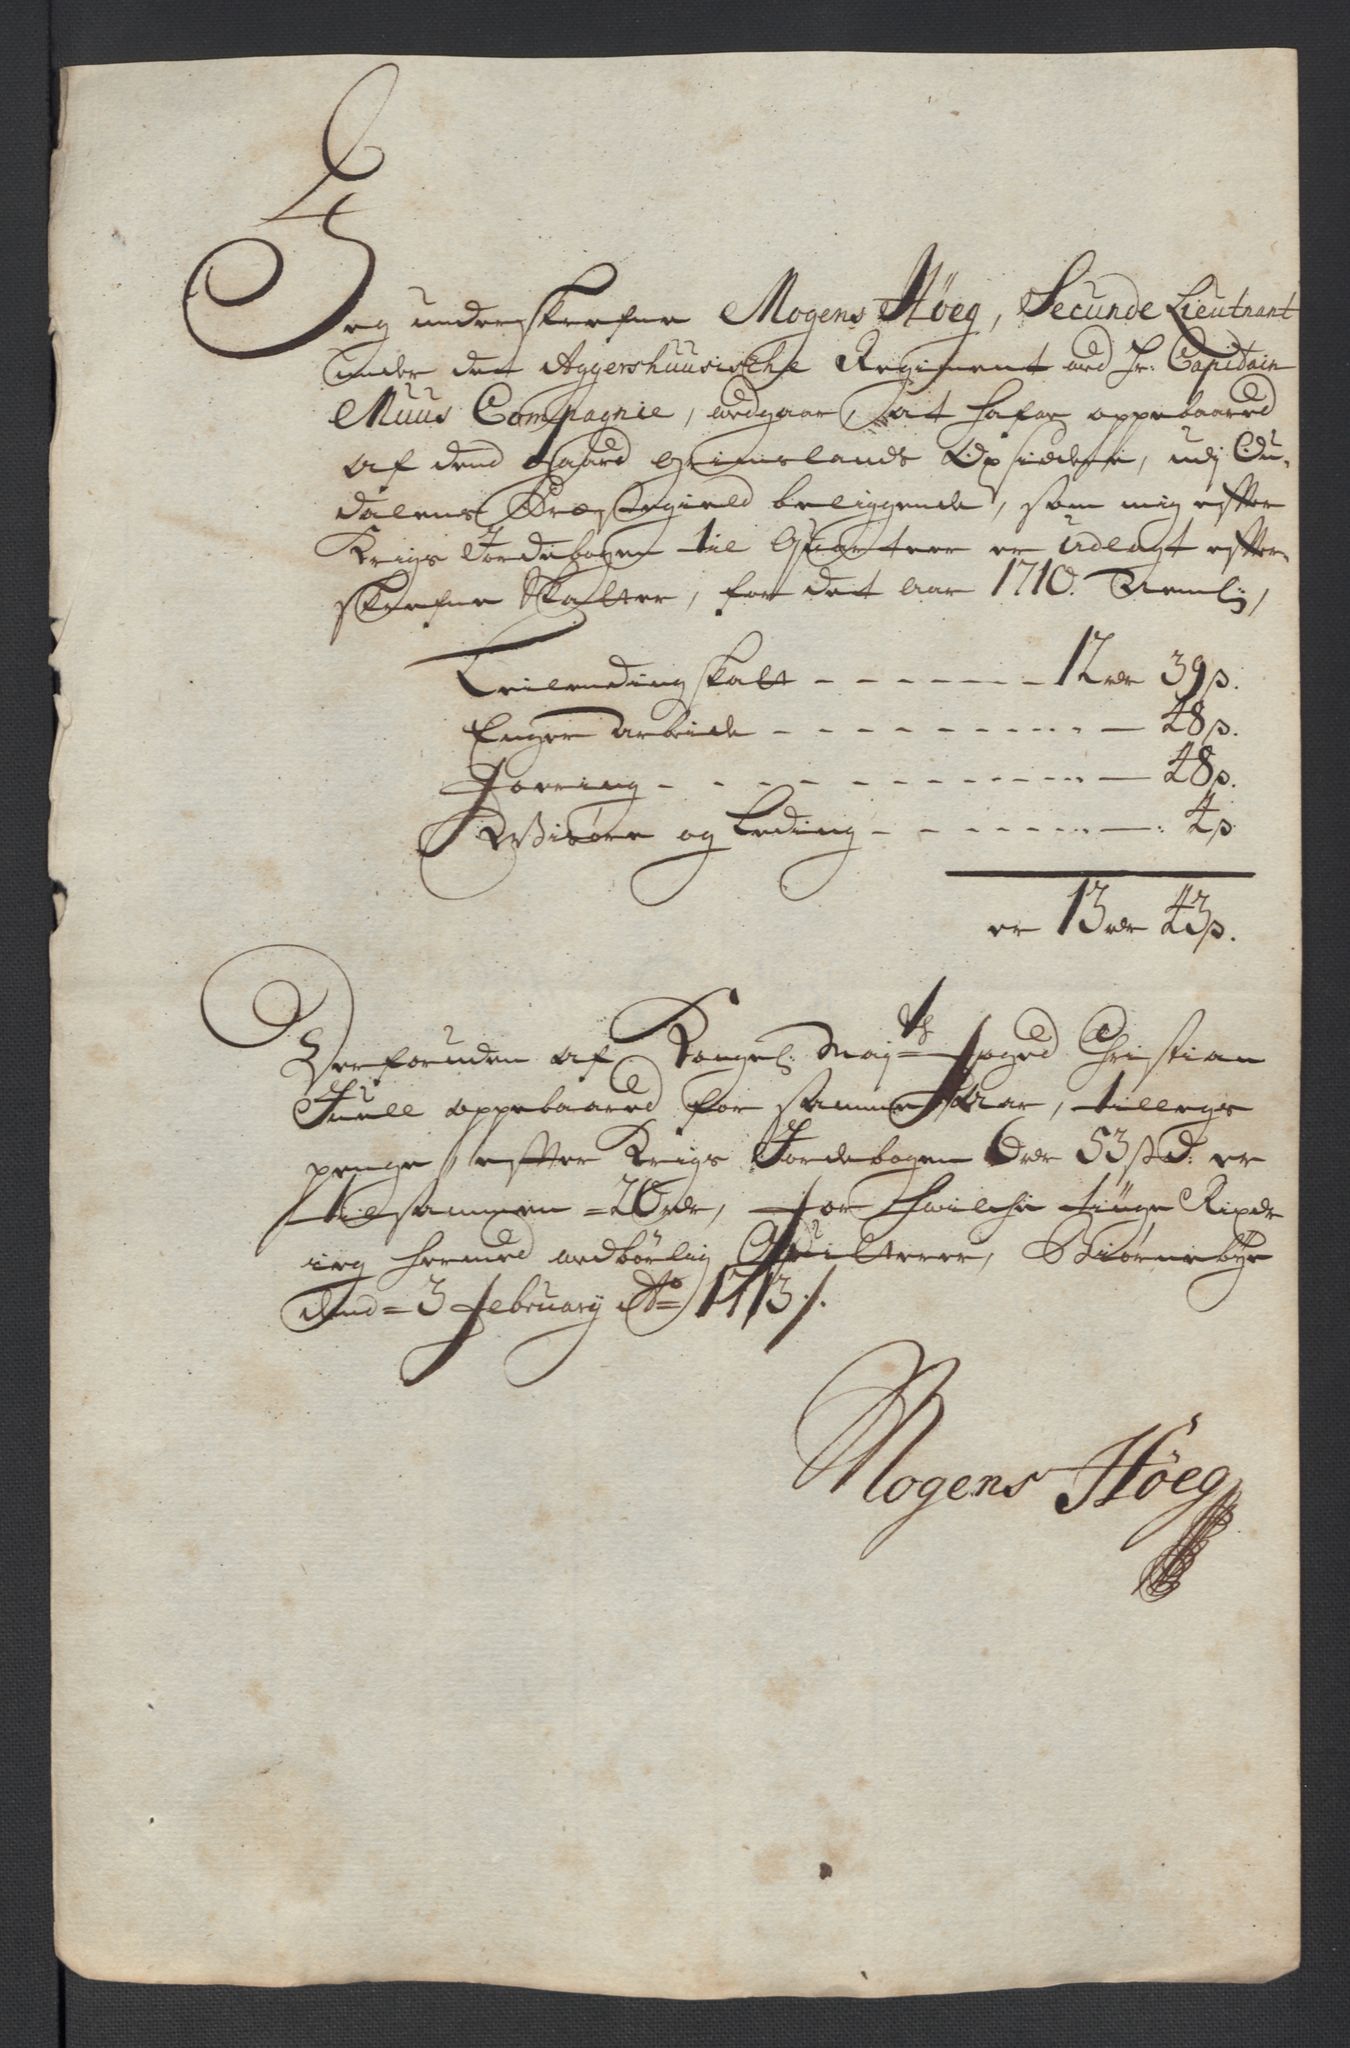 Jeg underskrefne Mogens Høeg, Secunde Lieutnant
under det Aggershuusische Regiment ved Hr: Capitain
Muus Compagnie, vedgaar, at hafve oppebaared
af dend Gaard Grimslands Opsiddere, udj Ou-
dalens Præstegield beliggende, som mig efter
Krigs Jordebogen til Quarteer er udlagt efter-
skrefne Skatter, for det aar 1710. Neml:,
Leilendingskatt - - - - - - 12 rdr 39 ß.
Enger Arbeide - - - - - - - - - - 48 ß.
Foering - - - - - - - - - - - 48 ß.
Wisøre og Leding - - - - - - - - - : 4 ß
er 13 rdr 43 ß.
Derforuden af Kongel: Maj=ts Foged Christian
Juell oppebaared for samme Aar, tillegs
penge, efter Krigs Jordebogen 6 rdr 53 ß er
tilsammen =20 rdr, for hvilche tiuge Rixdr
ieg hermed vedbørlig Qvitterer, Biørnebye
dend =3 February Ao= 1713 ./.
Mogens Høeg